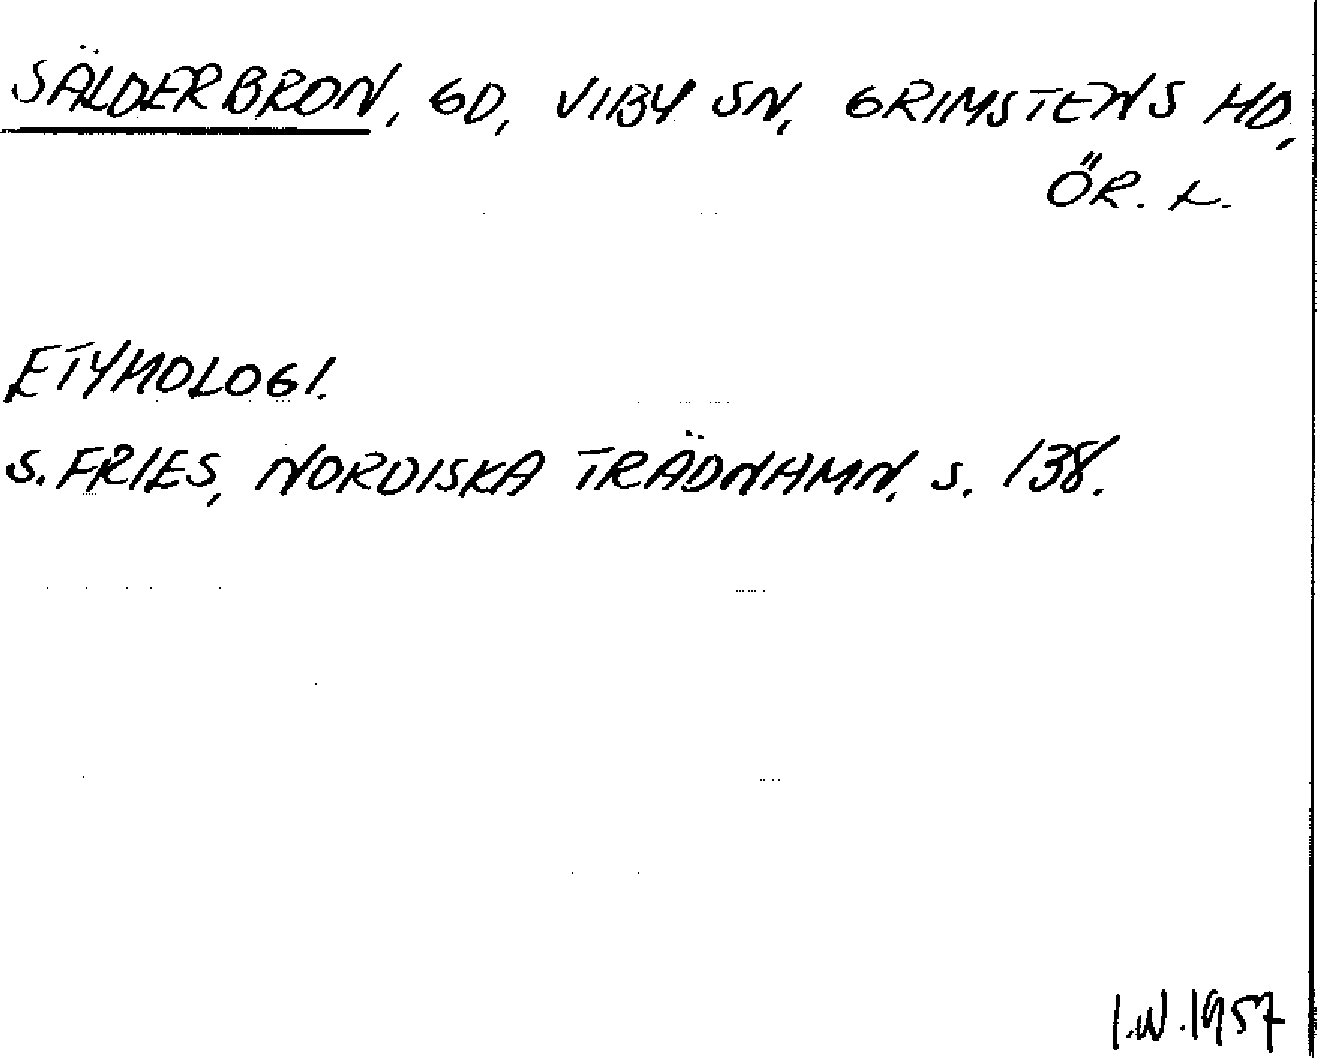 SÄLDERBRON, GD, VIBY SN, GRIMSTENS HD,
ÖR. L.
ETYMOLOGI.
S. FRIES, NORDISKA TRÄDNAMN, S. 138.
I.W.1957